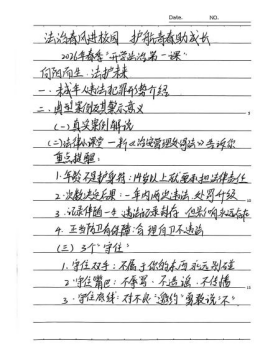 Date.        NO.
法治春风进校园 护航青春助成长
2026年春季"开学法治第一课"
向阳而生·法护未来
一、未成年人违法犯罪形势介绍
二、典型案例及其警示意义
(一)真实案例解读
(二)法律小课堂—新《治安管理处罚法》告诉你
重点提醒:
1.年龄不是护身符:14岁以上就要承担法律责任
2.次数决定后果:一年内两次违法,处罚升级
3.记录伴随一生 违法记录封存,但影响永远存在
4.正当防卫有保障:合理自卫不违法
(三)3个"守住"
1.守住双手:不属于你的东西永远别碰
2.守住嘴巴:不辱骂、不造谣、不传播
3.守住底线:对不良"邀约"勇敢说"不"